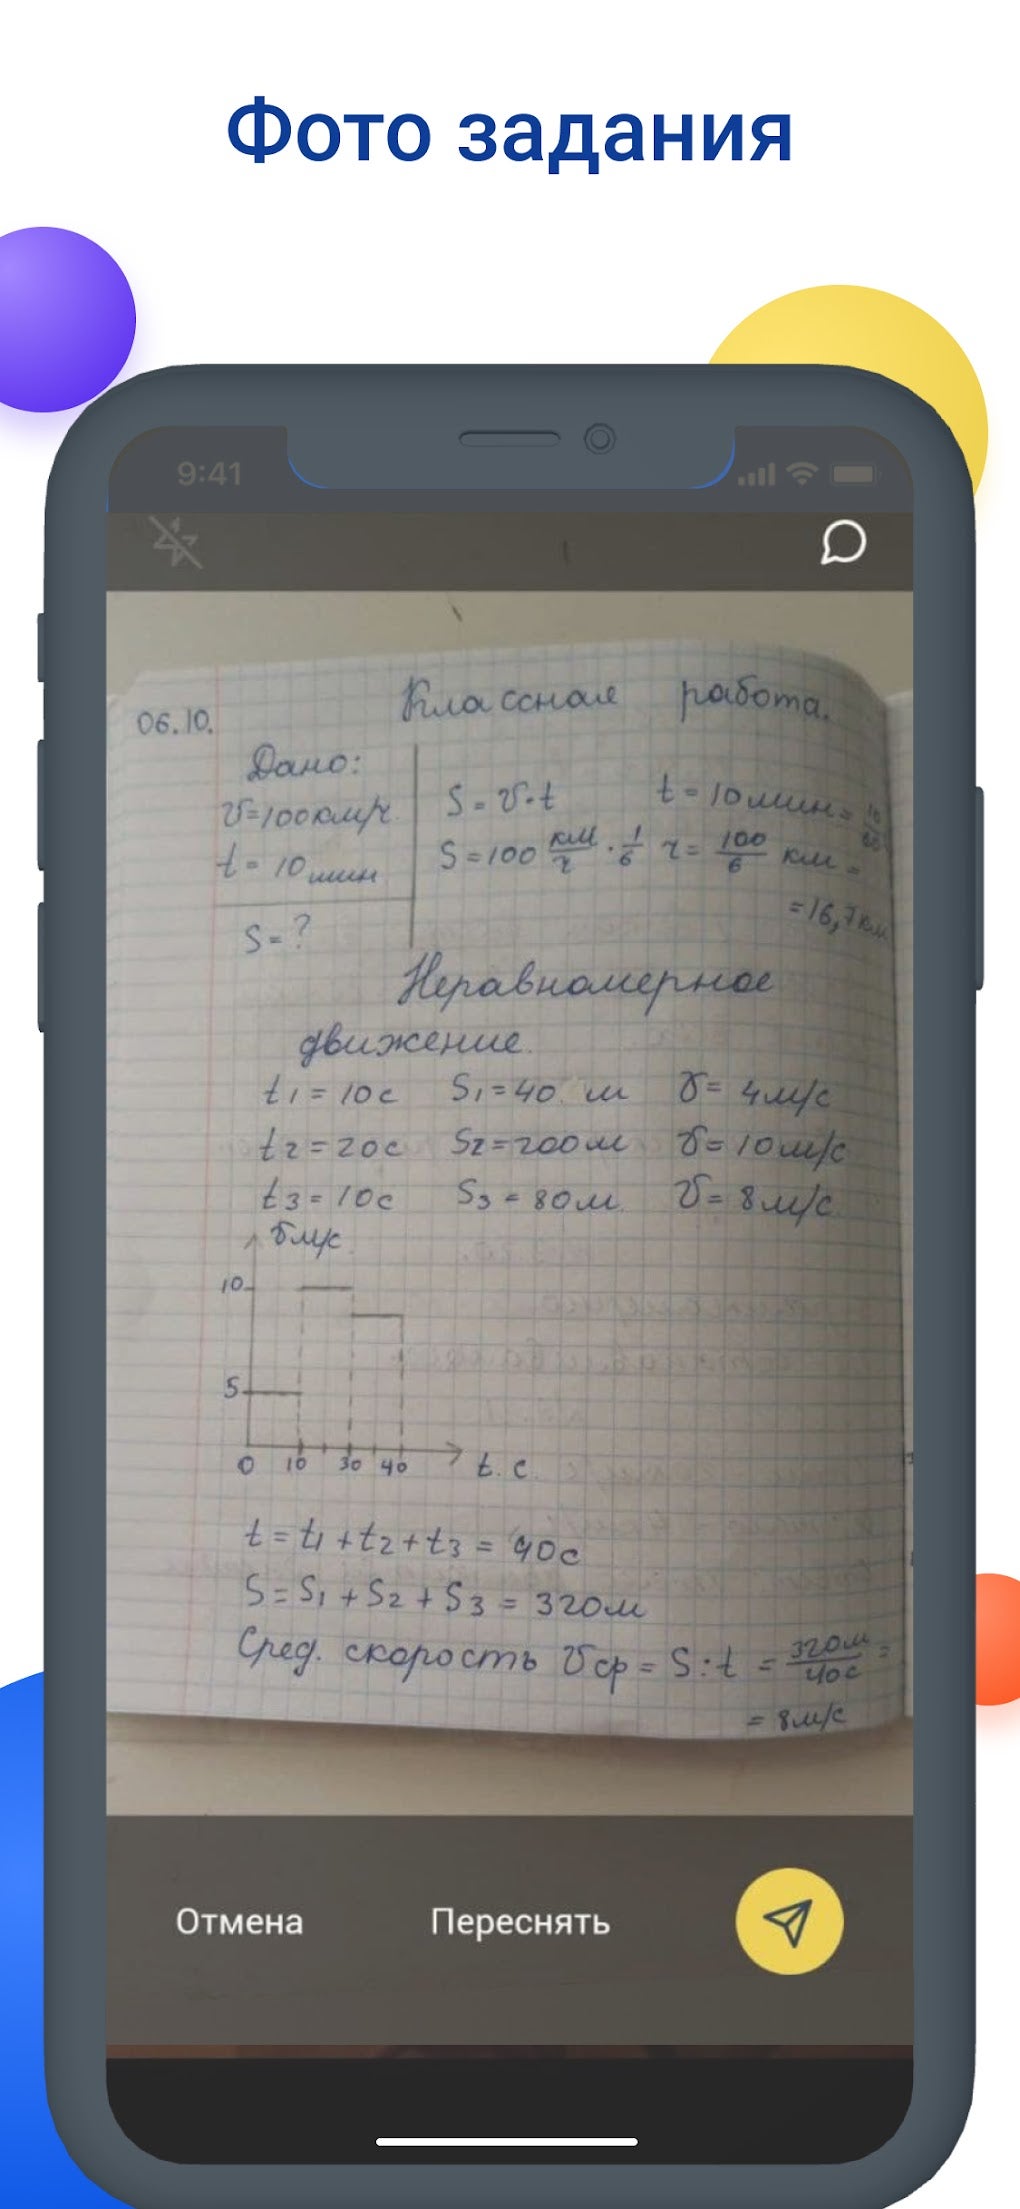 Фото задания
9:41
06.10. Классная работа.
Дано:
v=100км/ч
t = 10 мин
S = ?
S = v·t t = 10мин = 10/60
S = 100 км/ч · 1/6 ч = 100/6 км =
=16,7км
Неравномерное
движение.
t1 = 10с S1 = 40 м v = 4м/с
t2 = 20с S2 = 200м v = 10м/с
t3 = 10с S3 = 80м v = 8м/с
v м/с
10
5
0 10 30 40 t. с.
t = t1 + t2 + t3 = 40с
S = S1 + S2 + S3 = 320м
Сред. скорость vср = S : t = 320м/40с =
= 8м/с
Отмена Переснять